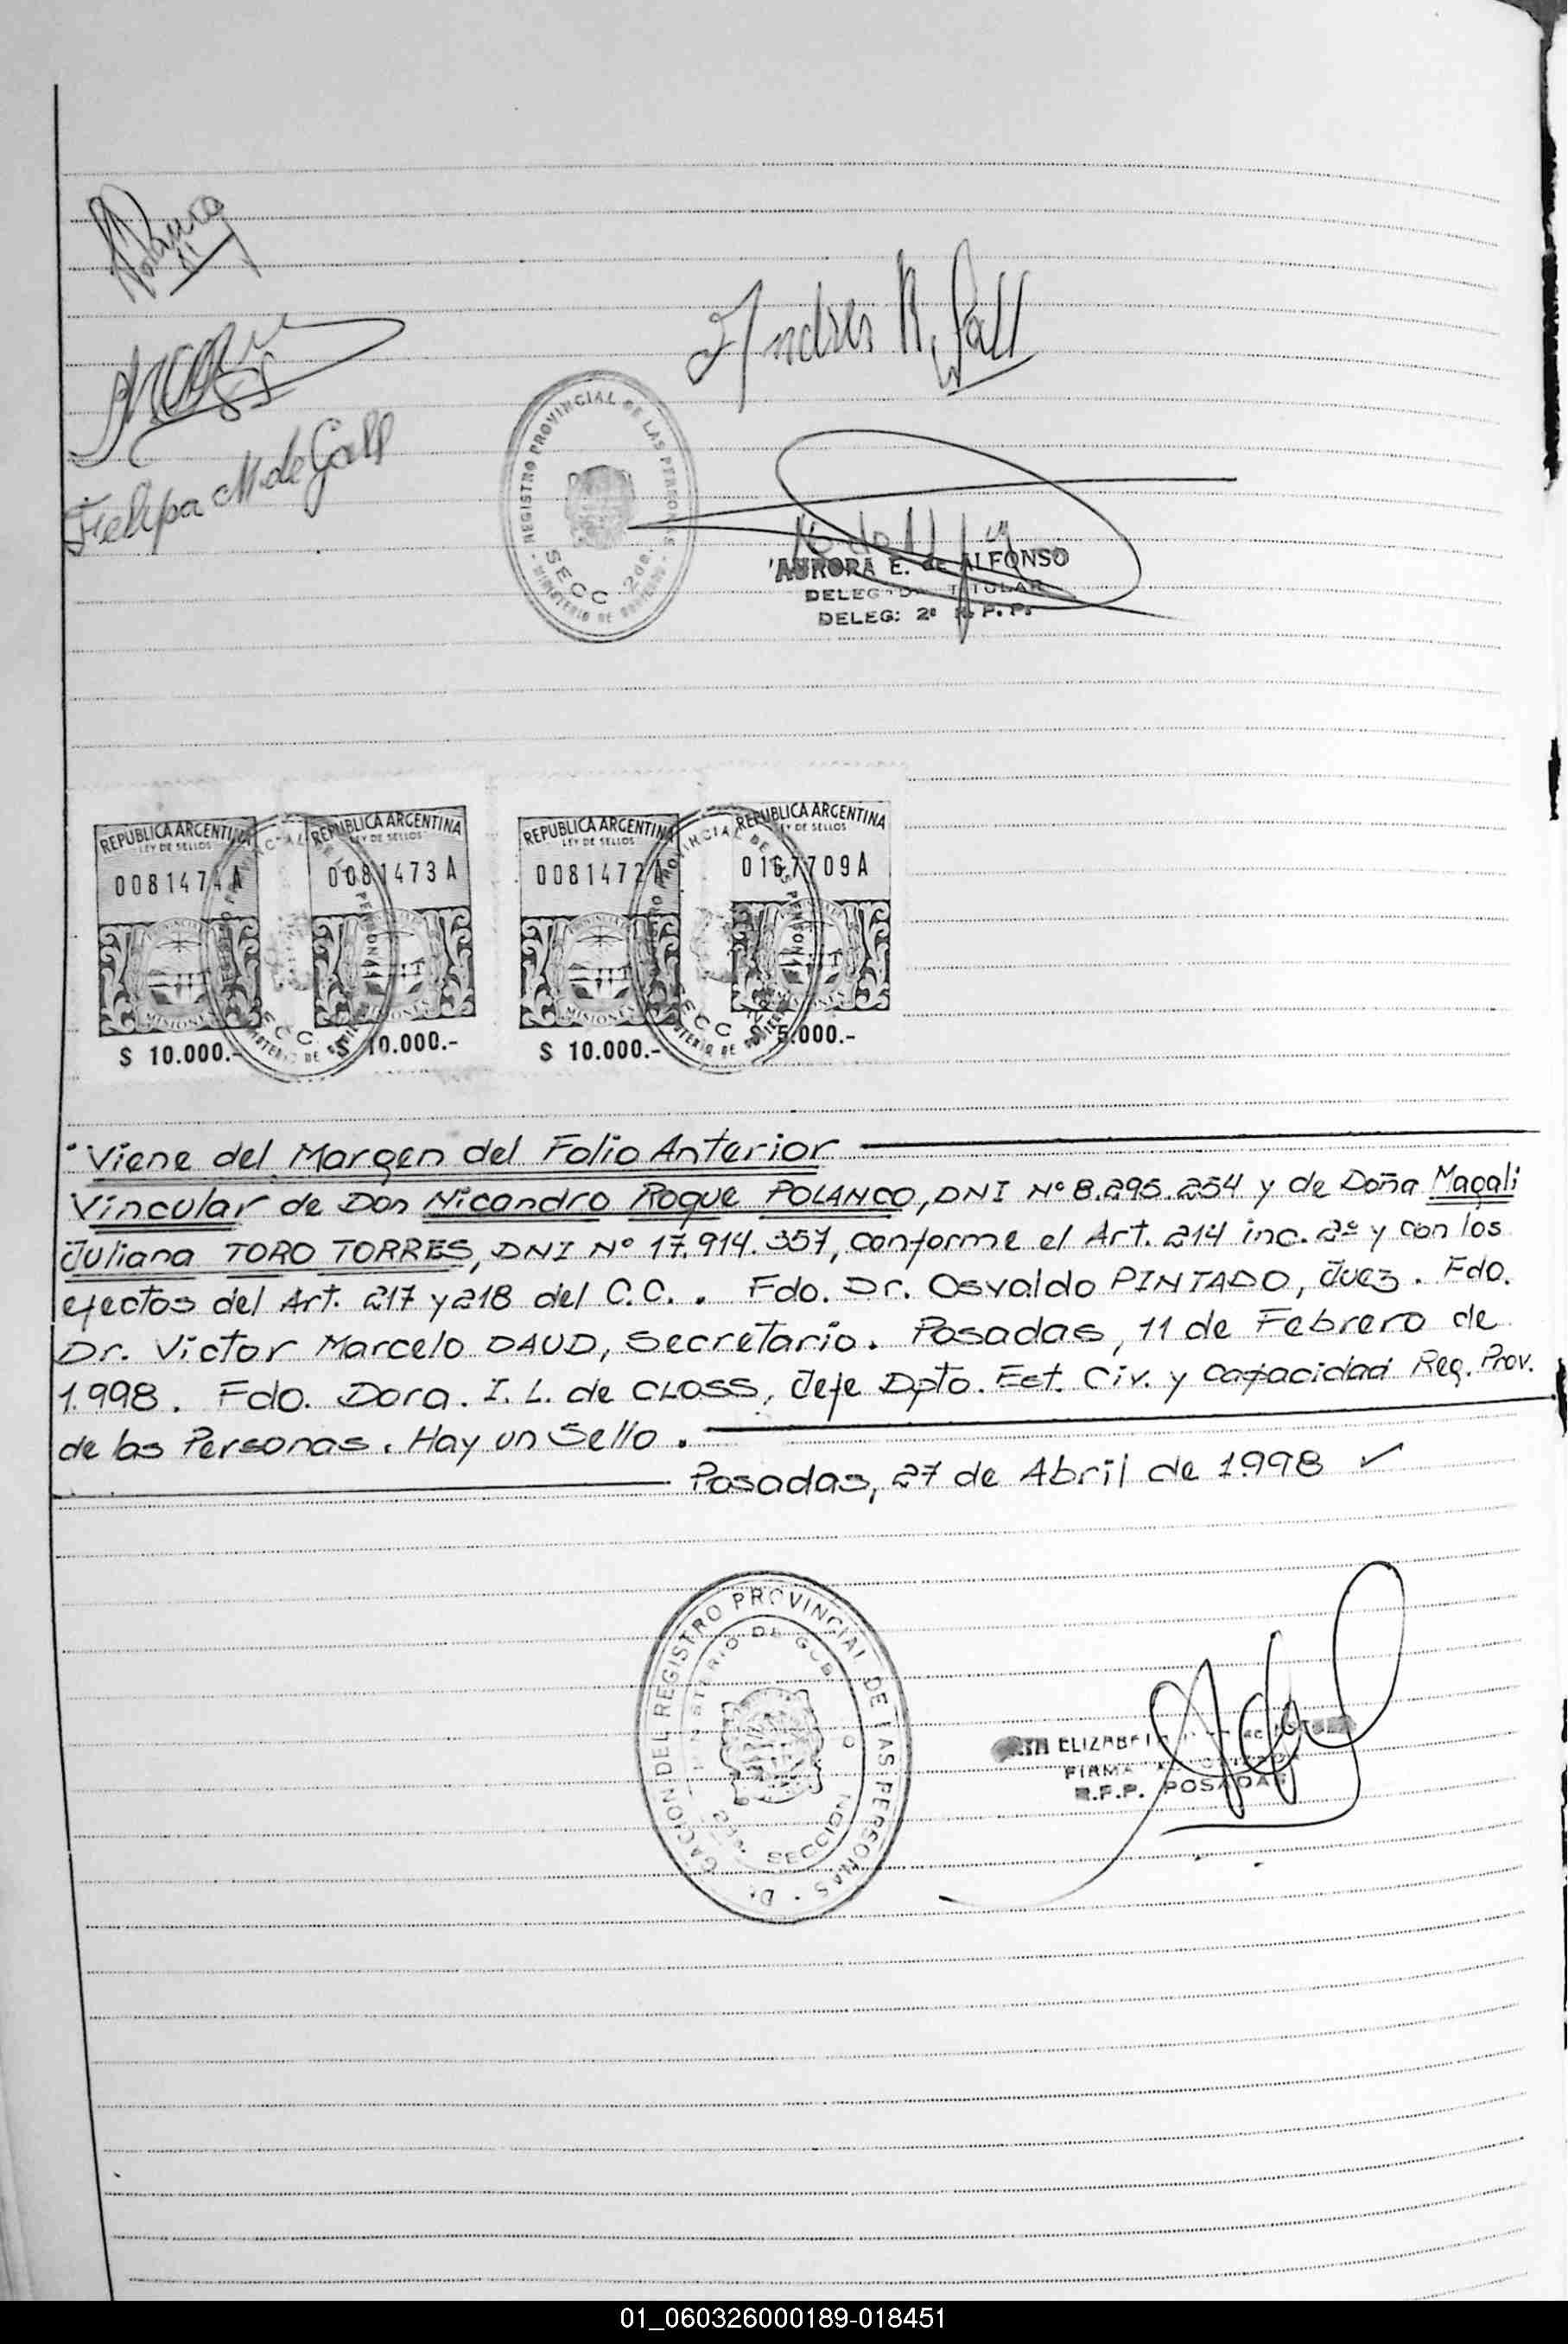 Andres R. Gall
Felipa M. de Gall
REGISTRO PROVINCIAL DE LAS PERSONAS
SECC. 2da.
MINISTERIO DE GOBIERNO
AURORA E. de ALFONSO
DELEGADA TITULAR
DELEG: 2ª R.P.P.
REPUBLICA ARGENTINA REPUBLICA ARGENTINA REPUBLICA ARGENTINA REPUBLICA ARGENTINA
LEY DE SELLOS LEY DE SELLOS LEY DE SELLOS LEY DE SELLOS
0081474A 0081473A 0081472A 0167709A
MISIONES MISIONES MISIONES MISIONES
$ 10.000.- $ 10.000.- $ 10.000.- $ 5.000.-
Viene del Margen del Folio Anterior
Vincular de Don Nicandro Roque POLANCO, DNI Nº 8.295.254 y de Doña Magali
Juliana TORO TORRES, DNI Nº 17.914.357, conforme el Art. 214 inc. 2º y con los
efectos del Art. 217 y 218 del C.C.. Fdo. Dr. Osvaldo PINTADO, Juez. Fdo.
Dr. Victor Marcelo DAUD, Secretario. Posadas, 11 de Febrero de
1.998. Fdo. Dora. I. L. de CLOSS, Jefe Dpto. Est. Civ. y Capacidad Reg. Prov.
de las Personas. Hay un Sello.
Posadas, 27 de Abril de 1.998
DELEGACION DEL REGISTRO PROVINCIAL DE LAS PERSONAS
MINISTERIO DE GOB
2da. SECCION
ELIZABETH
FIRMA
R.P.P. POSADAS
01_060326000189-018451